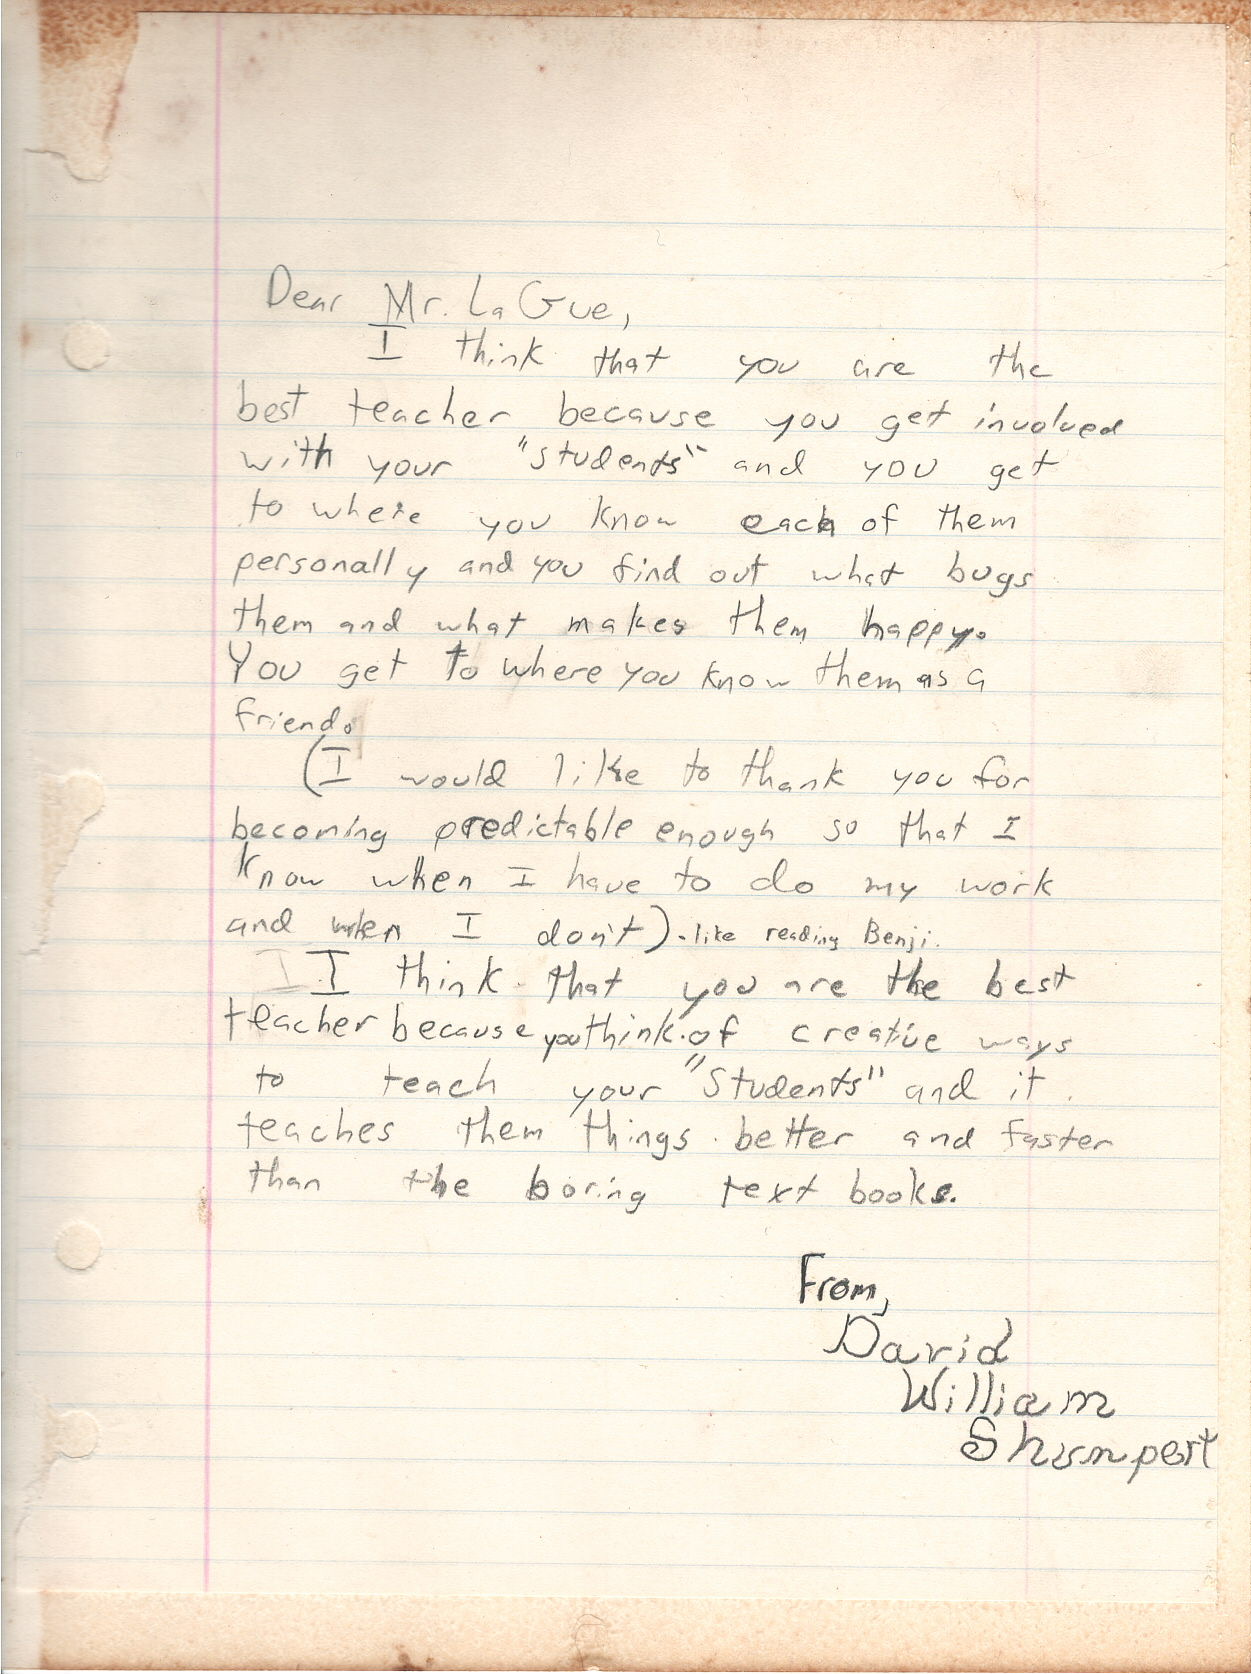 Dear Mr. La Gue,
I think that you are the
best teacher because you get involved
with your "students" and you get
to where you know each of them
personally and you find out what bugs
them and what makes them happy.
You get to where you know them as a
friend.
(I would like to thank you for
becoming predictable enough so that I
know when I have to do my work
and when I don't). like reading Benji.
I think that you are the best
teacher because you think of creative ways
to teach your "Students" and it
teaches them things better and faster
than the boring text books.
From,
David
William
Shumpert